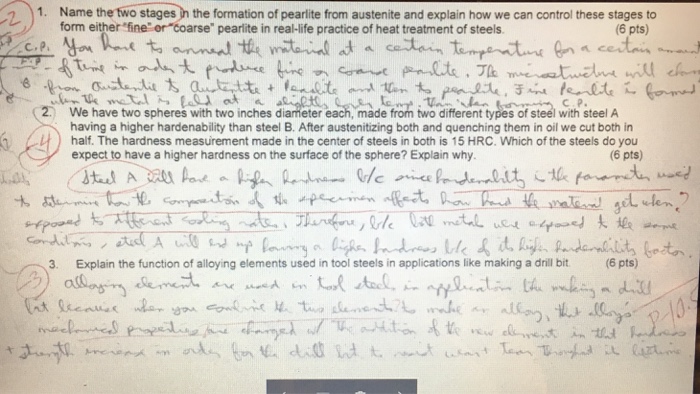 -2
1. Name the two stages in the formation of pearlite from austenite and explain how we can control these stages to
form either "fine" or "coarse" pearlite in real-life practice of heat treatment of steels. (6 pts)
C.P. You have to anneal the material at a certain temperature for a certain amount
of time in order to produce fine or coarse pearlite. The microstructure will
from austenite to austenite + Pearlite and then to pearlite. Fine Pearlite is formed
when the metal is held at a slightly temp. than when forming C.P.
2. We have two spheres with two inches diameter each, made from two different types of steel with steel A
having a higher hardenability than steel B. After austenitizing both and quenching them in oil we cut both in
-4 half. The hardness measurement made in the center of steels in both is 15 HRC. Which of the steels do you
expect to have a higher hardness on the surface of the sphere? Explain why. (6 pts)
Steel A will have a higher hardness b/c since hardenability is the parameter used
to determine how the composition of the specimen affects how hard the material get when ?
exposed to different cooling rates. Therefore, b/c both metals were exposed to the same
conditions, steel A will end up having a higher hardness b/c of its high hardenability factor.
3. Explain the function of alloying elements used in tool steels in applications like making a drill bit. (6 pts)
-3 alloying elements are used in tool steels in applications like making a drill
bit because when you combine the two elements to make an alloy, that alloy's
mechanical properties are changed w/ the addition of the new element in that hardness
+ strength increase in order for the drill bit to not want tear throughout its lifetime